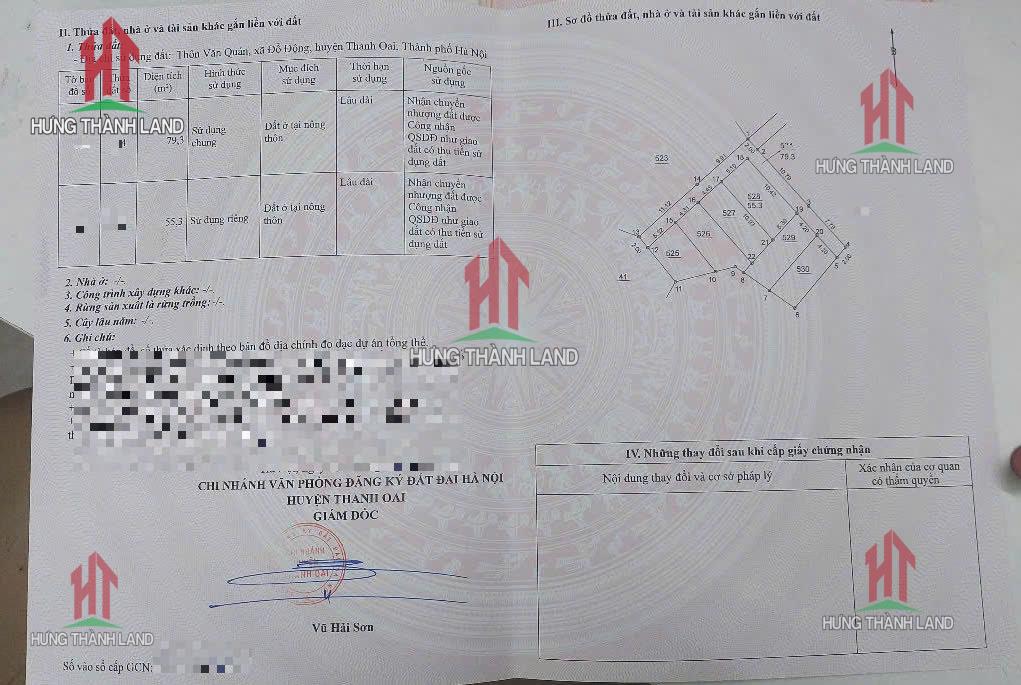 II. Thửa đất, nhà ở và tài sản khác gắn liền với đất
1. Thửa đất:
- Địa chỉ sử dụng đất: Thôn Văn Quán, xã Đỗ Động, huyện Thanh Oai, Thành phố Hà Nội
Tờ bản đồ số
Thửa đất số
Diện tích (m²)
Hình thức sử dụng
Mục đích sử dụng
Thời hạn sử dụng
Nguồn gốc sử dụng
79,3
Sử dụng chung
Đất ở tại nông thôn
Lâu dài
Nhận chuyển nhượng đất được Công nhận QSDĐ như giao đất có thu tiền sử dụng đất
55,3
Sử dụng riêng
Đất ở tại nông thôn
Lâu dài
Nhận chuyển nhượng đất được Công nhận QSDĐ như giao đất có thu tiền sử dụng đất
2. Nhà ở: -/-
3. Công trình xây dựng khác: -/-.
4. Rừng sản xuất là rừng trồng: -/-.
5. Cây lâu năm: -/-.
6. Ghi chú:
số thửa xác định theo bản đồ địa chính đo đạc dự án tổng thể.
CHI NHÁNH VĂN PHÒNG ĐĂNG KÝ ĐẤT ĐAI HÀ NỘI
HUYỆN THANH OAI
GIÁM ĐỐC
CHI NHÁNH
THANH OAI
Vũ Hải Sơn
Số vào sổ cấp GCN:
III. Sơ đồ thửa đất, nhà ở và tài sản khác gắn liền với đất
B
523
79.3
1
2
18
2.00
9.91
5.10
10.79
14
17
4.65
10.42
3
11.12
16
4.31
528
55.3
19
7.79
15
527
10.00
4.20
20
13
5.12
8.38
4.20
12
2.00
526
21
529
5
2.00
525
22
41
9
8
530
11
10
7
6
IV. Những thay đổi sau khi cấp giấy chứng nhận
Nội dung thay đổi và cơ sở pháp lý
Xác nhận của cơ quan có thẩm quyền
HƯNG THÀNH LAND
HƯNG THÀNH LAND
HƯNG THÀNH LAND
HƯNG THÀNH LAND
HƯNG THÀNH LAND